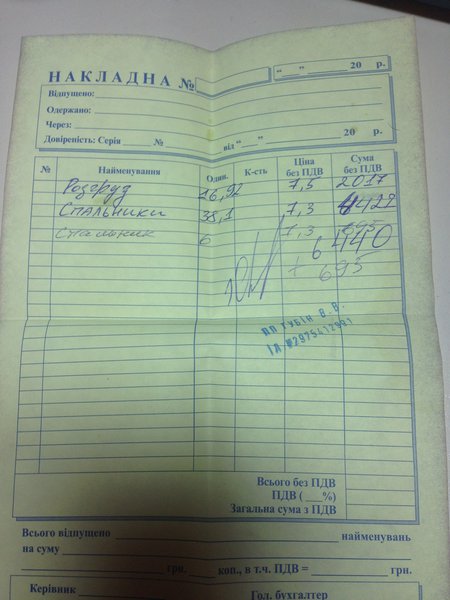 НАКЛАДНА № “ ” 20 р.
Відпущено:
Одержано:
Через:
Довіреність: Серія № від “ ” 20 р.
№ Найменування Один. К-сть Ціна без ПДВ Сума без ПДВ
26,92 7,5 2017
Спальники 38,1 7,3 4429
Спальник 6 7,3 695
6440
+ 695
ПП ГУБІН В.В.
Всього без ПДВ
ПДВ ( %)
Загальна сума з ПДВ
Всього відпущено найменувань
на суму
грн. коп., в т.ч. ПДВ = грн.
Керівник Гол. бухгалтер